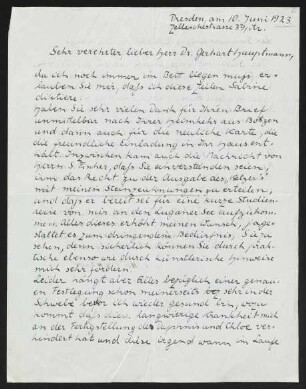 Dresden, am 10. Juni 1923
Zellescherstrasse 33/I. r.
Sehr verehrter, lieber Herr Dr. Gerhart Hauptmann,
da ich noch immer im Bett liegen muss, er-
lauben Sie mir, dass ich diese Zeilen Sabine
diktiere:
haben Sie sehr vielen Dank für Ihren Brief
unmittelbar nach Ihrer Heimkehr aus Bozen
und dann auch für die neuliche Karte, die
die freundliche Einladung in Ihr Haus ent-
hält. Inzwischen kam auch die Nachricht von
Herrn S. Fischer, dass Sie einverstanden seien,
ihm das Recht zu der Ausgabe des
mit meinen Steinzeichnungen zu erteilen,
und dass er bereit sei für eine kurze Studien-
reise von mir an den Luganer See aufzukom-
men. Alles dieses erhöht meinen Wunsch,
zum dringenden Bedürfnis, Sie zu
sehen, denn sicherlich können Sie durch prak-
tische ebenso wie durch künstlerische Hinweise
mich sehr fördern.
Leider hängt aber Alles bezüglich einer genau-
en Festlegung schon meinerseits so sehr in der
Schwebe bevor ich wieder gesund bin, wozu
kommt dass diese langwierige Krankheit mich
an der Fertigstellung des Daphnis und Chloe ver-
hindert hat und diese irgend wann im Laufe